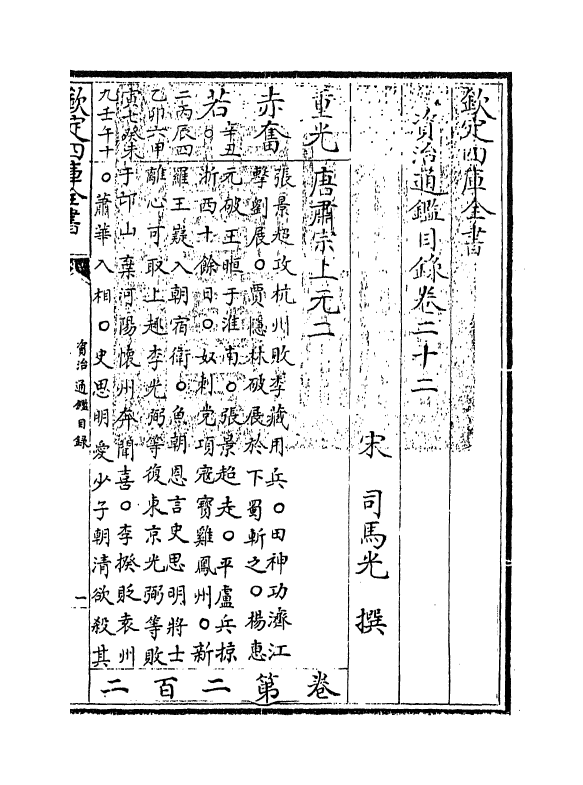 欽定四庫全書
資治通鑑目録卷二十二
宋 司馬光 撰
重光 唐肅宗上元二
赤奮 張景超攻杭州敗李藏用兵○田神功濟江
擊劉展○賈隱林破展於下蜀斬之○楊惠
若 辛丑 元破王暅于淮南○張景超走○平盧兵掠
○ 浙西十餘日○奴剌党項寇寳雞鳳州○新
二丙辰四 羅王嶷入朝宿衛○魚朝恩言史思明將士
乙卯六甲 離心可取上趣李光弼等復東京光弼等敗
寅七癸未 于邙山棄河陽懷州奔聞喜○李揆貶袁州
九壬午十 ○蕭華入相○史思明愛少子朝清欲殺其
卷第二百二
欽定四庫全書
資治通鑑目録
一